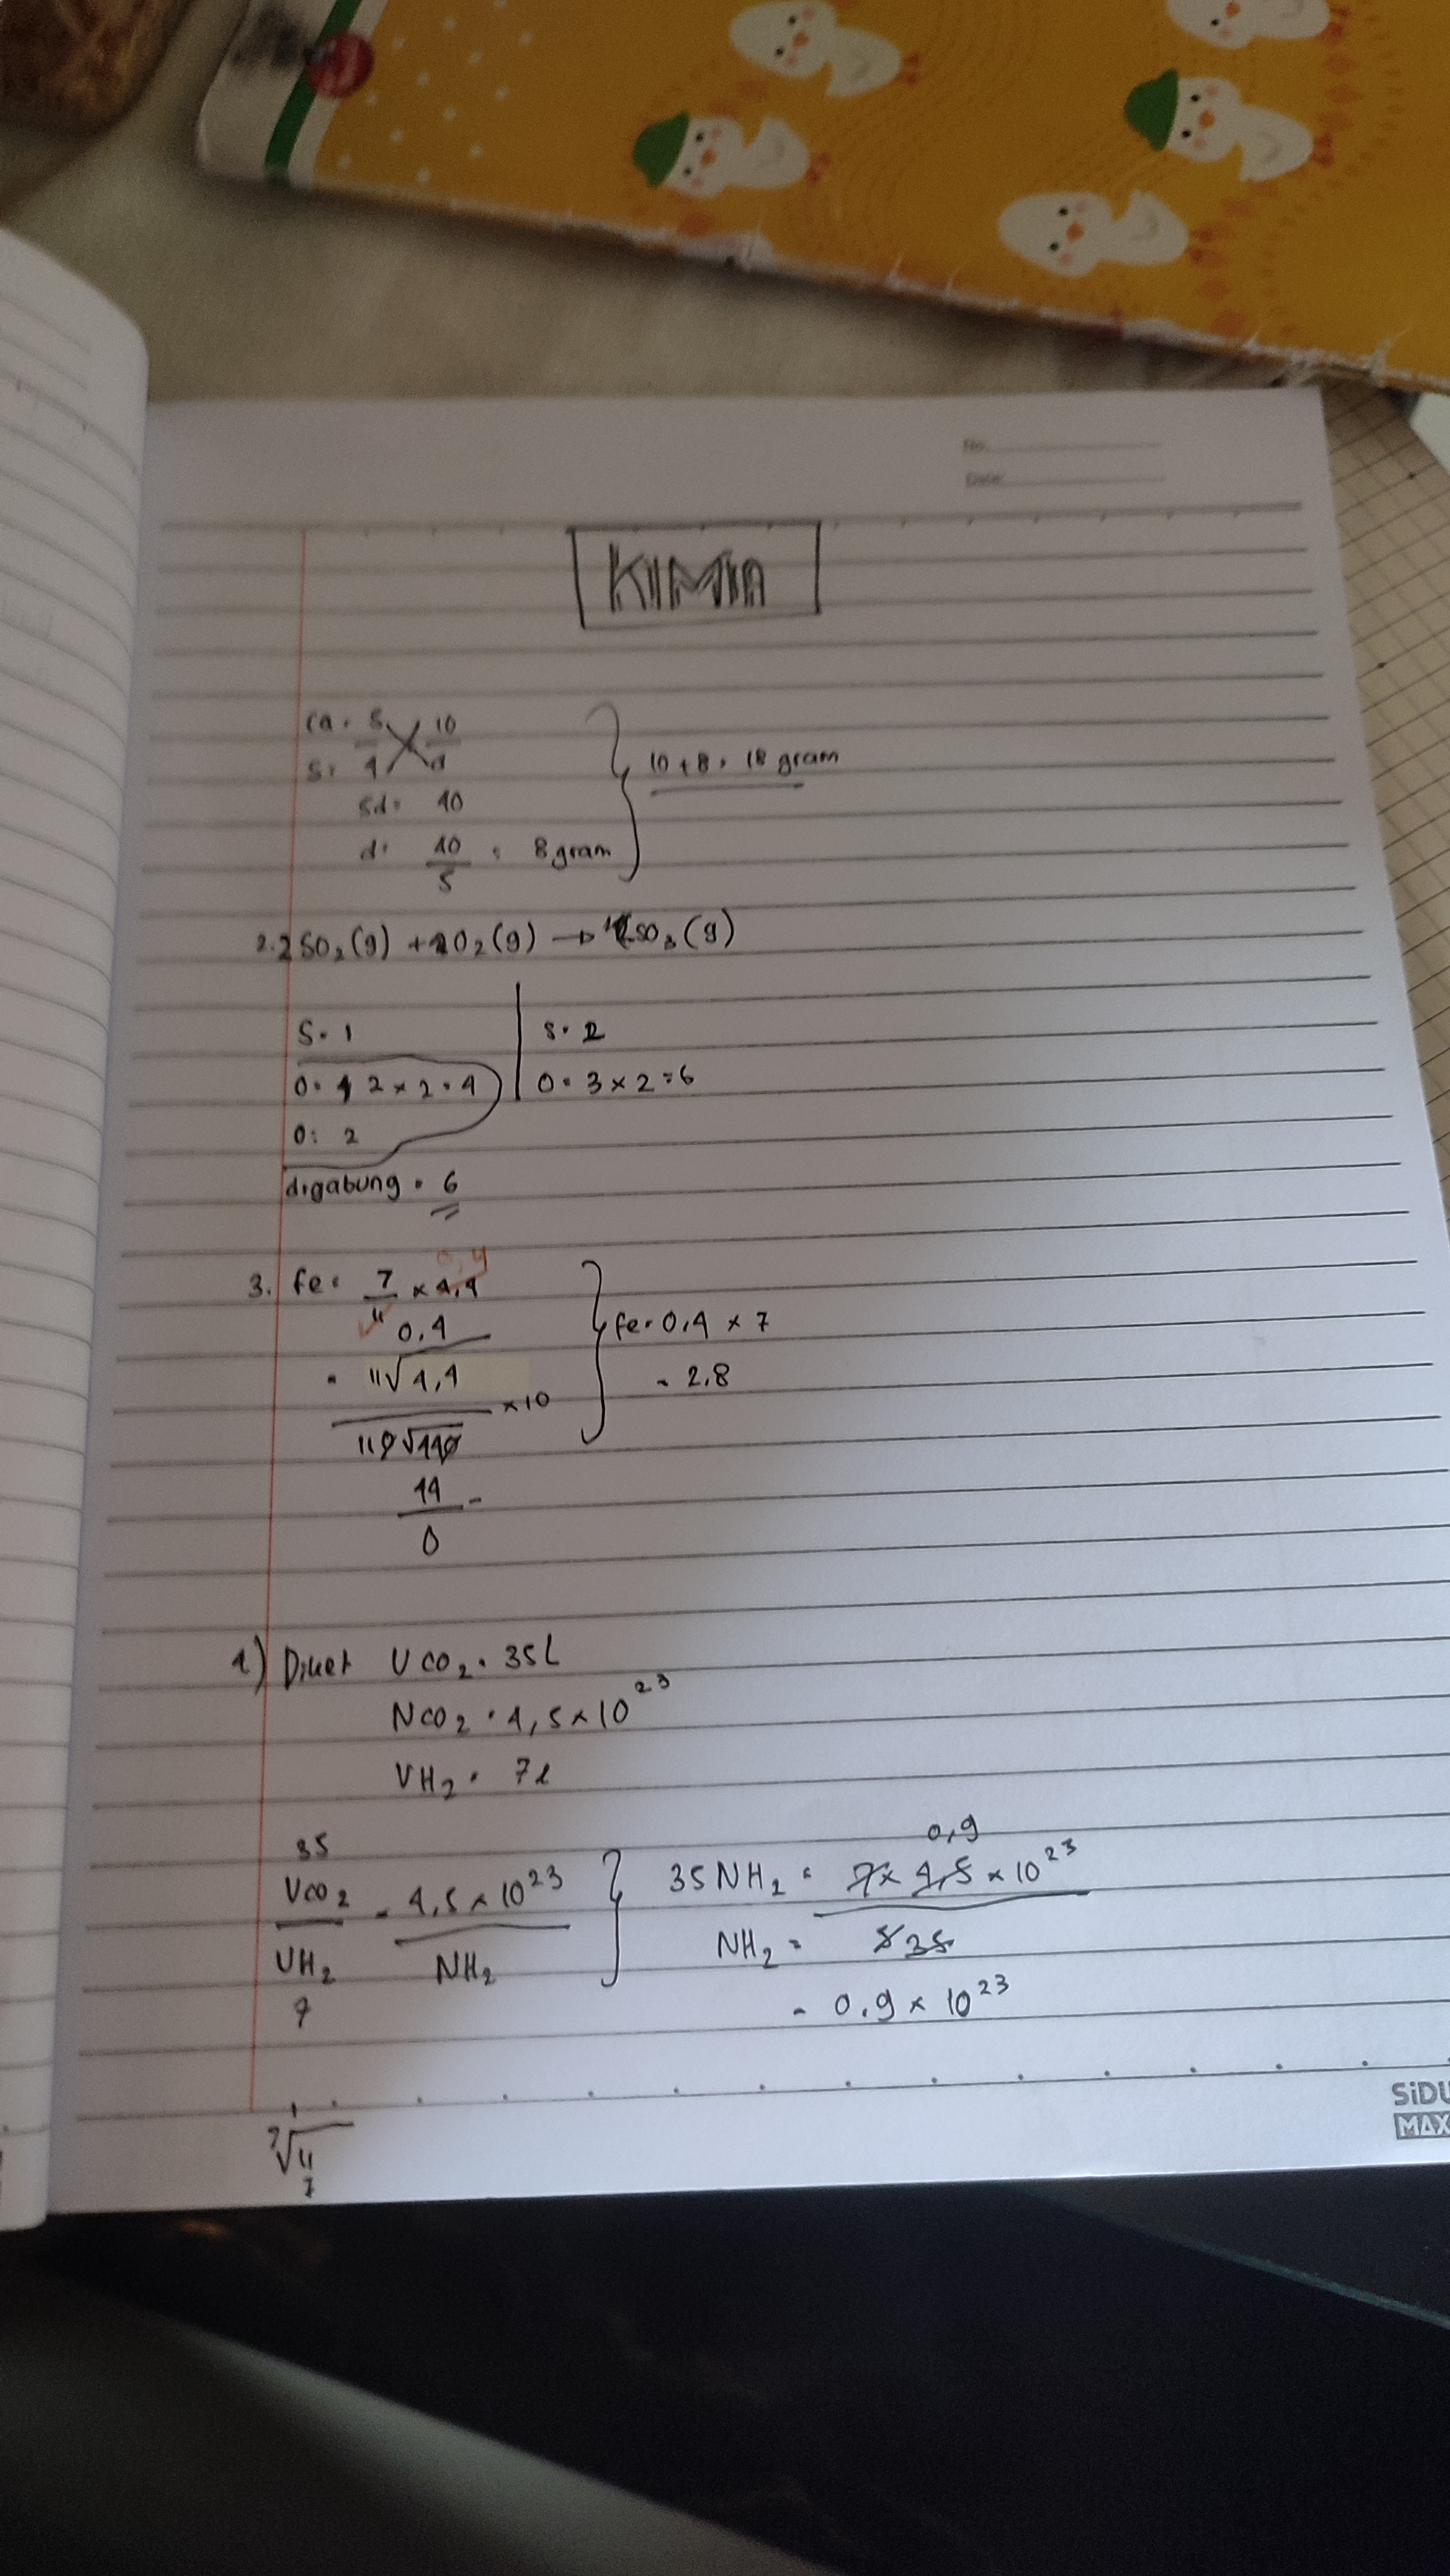 No.
Date:
KIMIA
Ca = 5 10
S = 4 d
5d = 40
d = 40 = 8 gram
5
10 + 8 = 18 gram
2. 2 SO₂ (g) + O₂ (g) → SO₃ (g)
S = 1
O = 2 x 2 = 4
O = 2
digabung = 6
S = 2
O = 3 x 2 = 6
3. fe = 7 x 4,4
11
0,4
0,4
= 11√4,4
x 10
110√440
44 -
0
fe = 0,4 x 7
= 2,8
4) Diket VCO₂ = 35 L
NCO₂ = 4,5 x 10²³
VH₂ = 7 l
35
VCO₂ = 4,5 x 10²³
VH₂ NH₂
7
0,9
35 NH₂ = 7 x 4,5 x 10²³
NH₂ = 5 35
= 0,9 x 10²³
1
7√11
7
SiDU
MAX